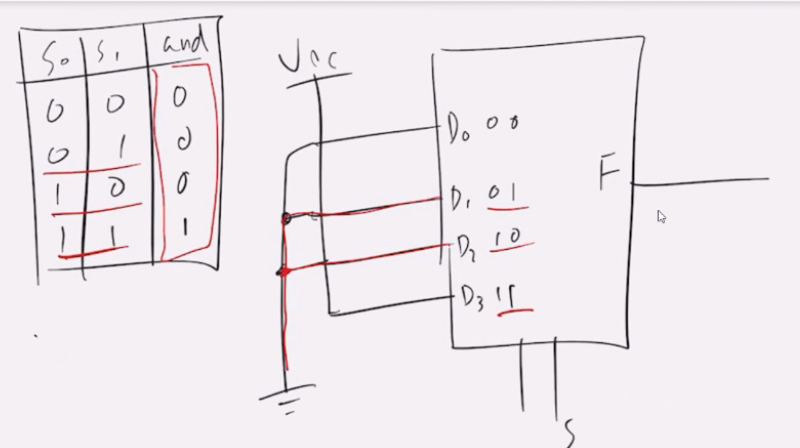 S₀ S₁ and
0 0 0
0 1 0
1 0 0
1 1 1
Vcc
D₀ 00
D₁ 01
D₂ 10
D₃ 11
F
S